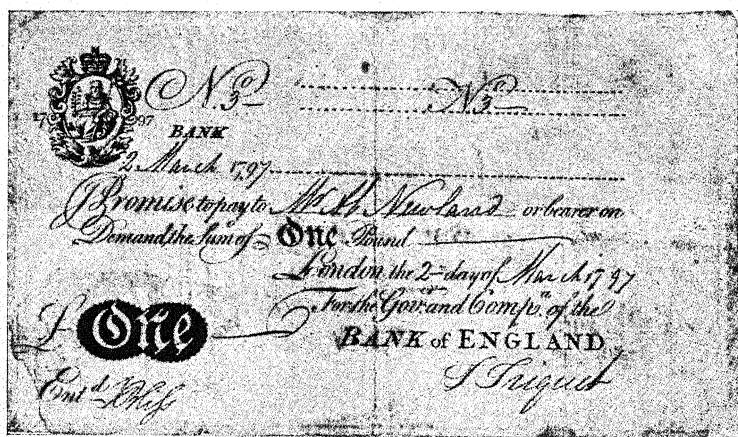 No 3 No 3
1797
BANK
2 March 1797
I Promise to pay to Mr Ab Newland or bearer on
Demand the Sum of One Pound
London the 2 day of March 1797
For the Gov.r and Comp.a of the
£ One BANK of ENGLAND
J Triquet
Ent.d